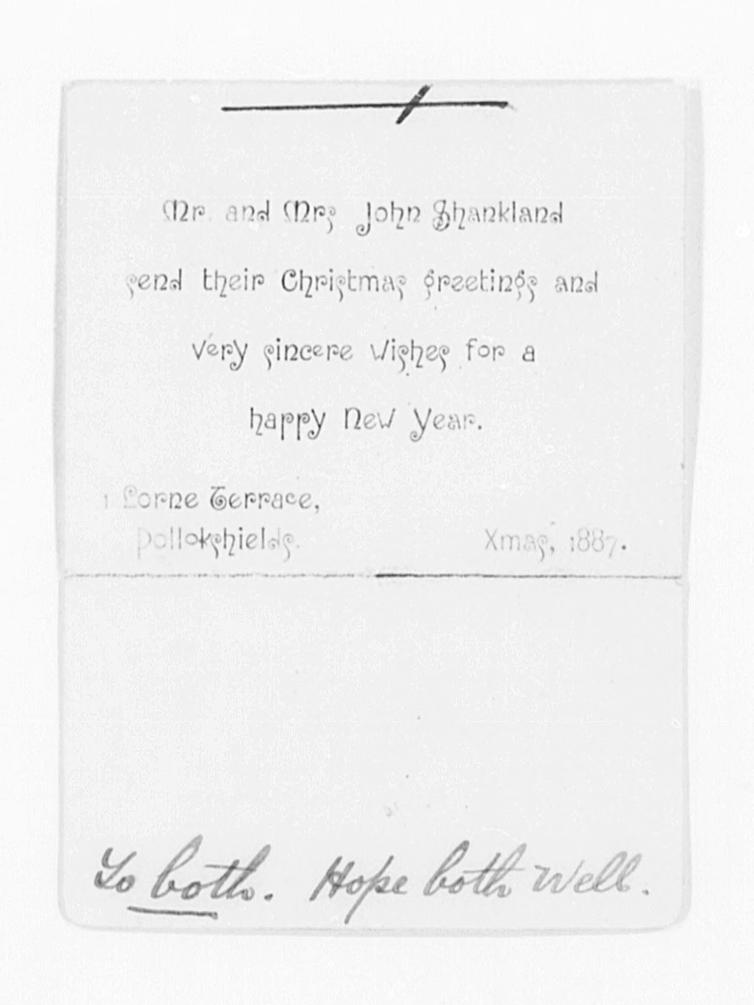 Mr. and Mrs John Shankland
send their Christmas greetings and
very sincere wishes for a
happy New Year.
1 Lorne Terrace,
Pollokshields.
Xmas, 1887.
To both. Hope both well.